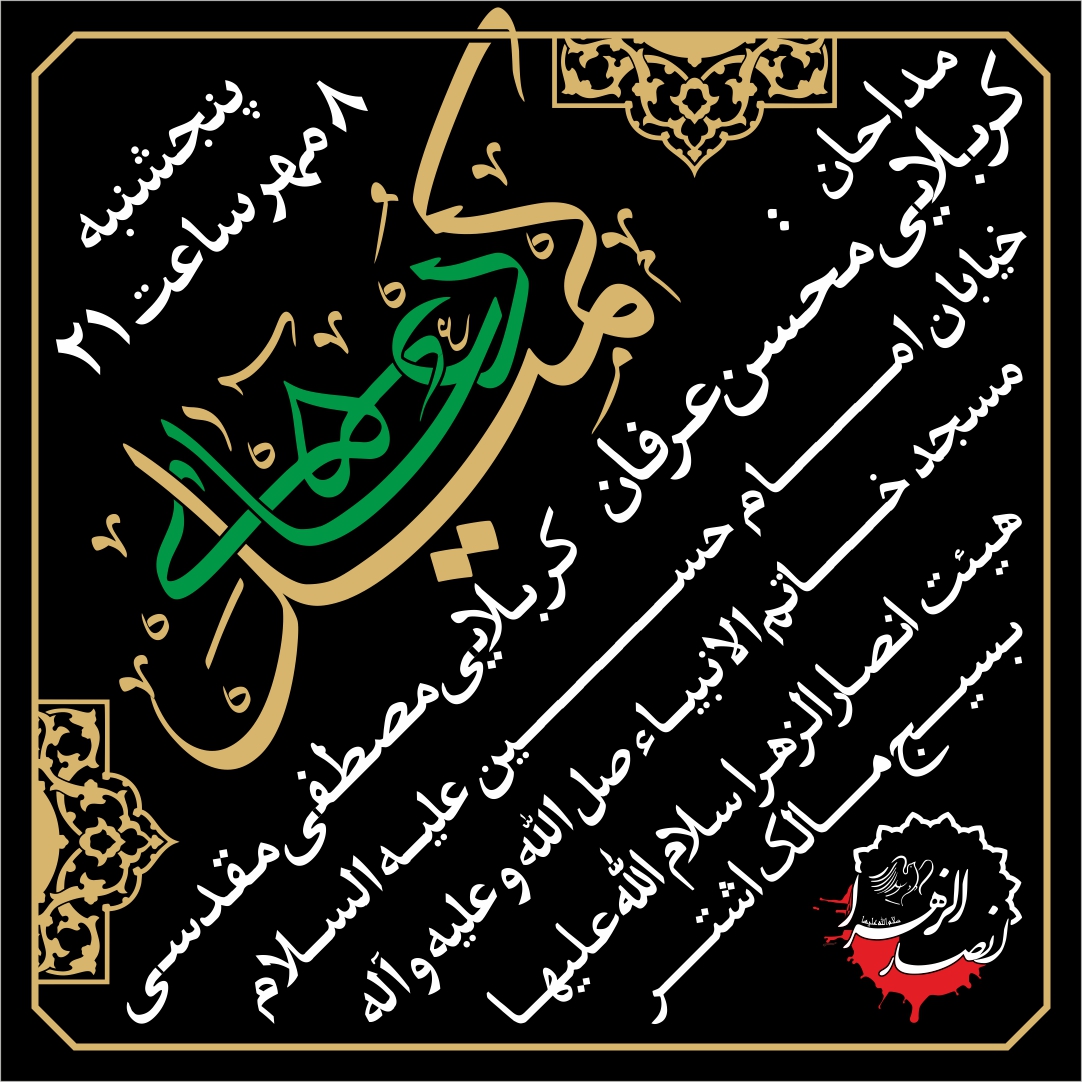 پنجشنبه
۸ مهر ساعت ۲۱
کمیل
مداحان:
کربلایی محسن عرفان کربلایی مصطفی مقدسی
خیابان امام حسین علیه السلام
مسجد خاتم الانبیاء صل الله و علیه و آله
هیئت انصار الزهرا سلام الله علیها
بسیج مالک اشتر
انصار الزهرا
سلام الله علیها